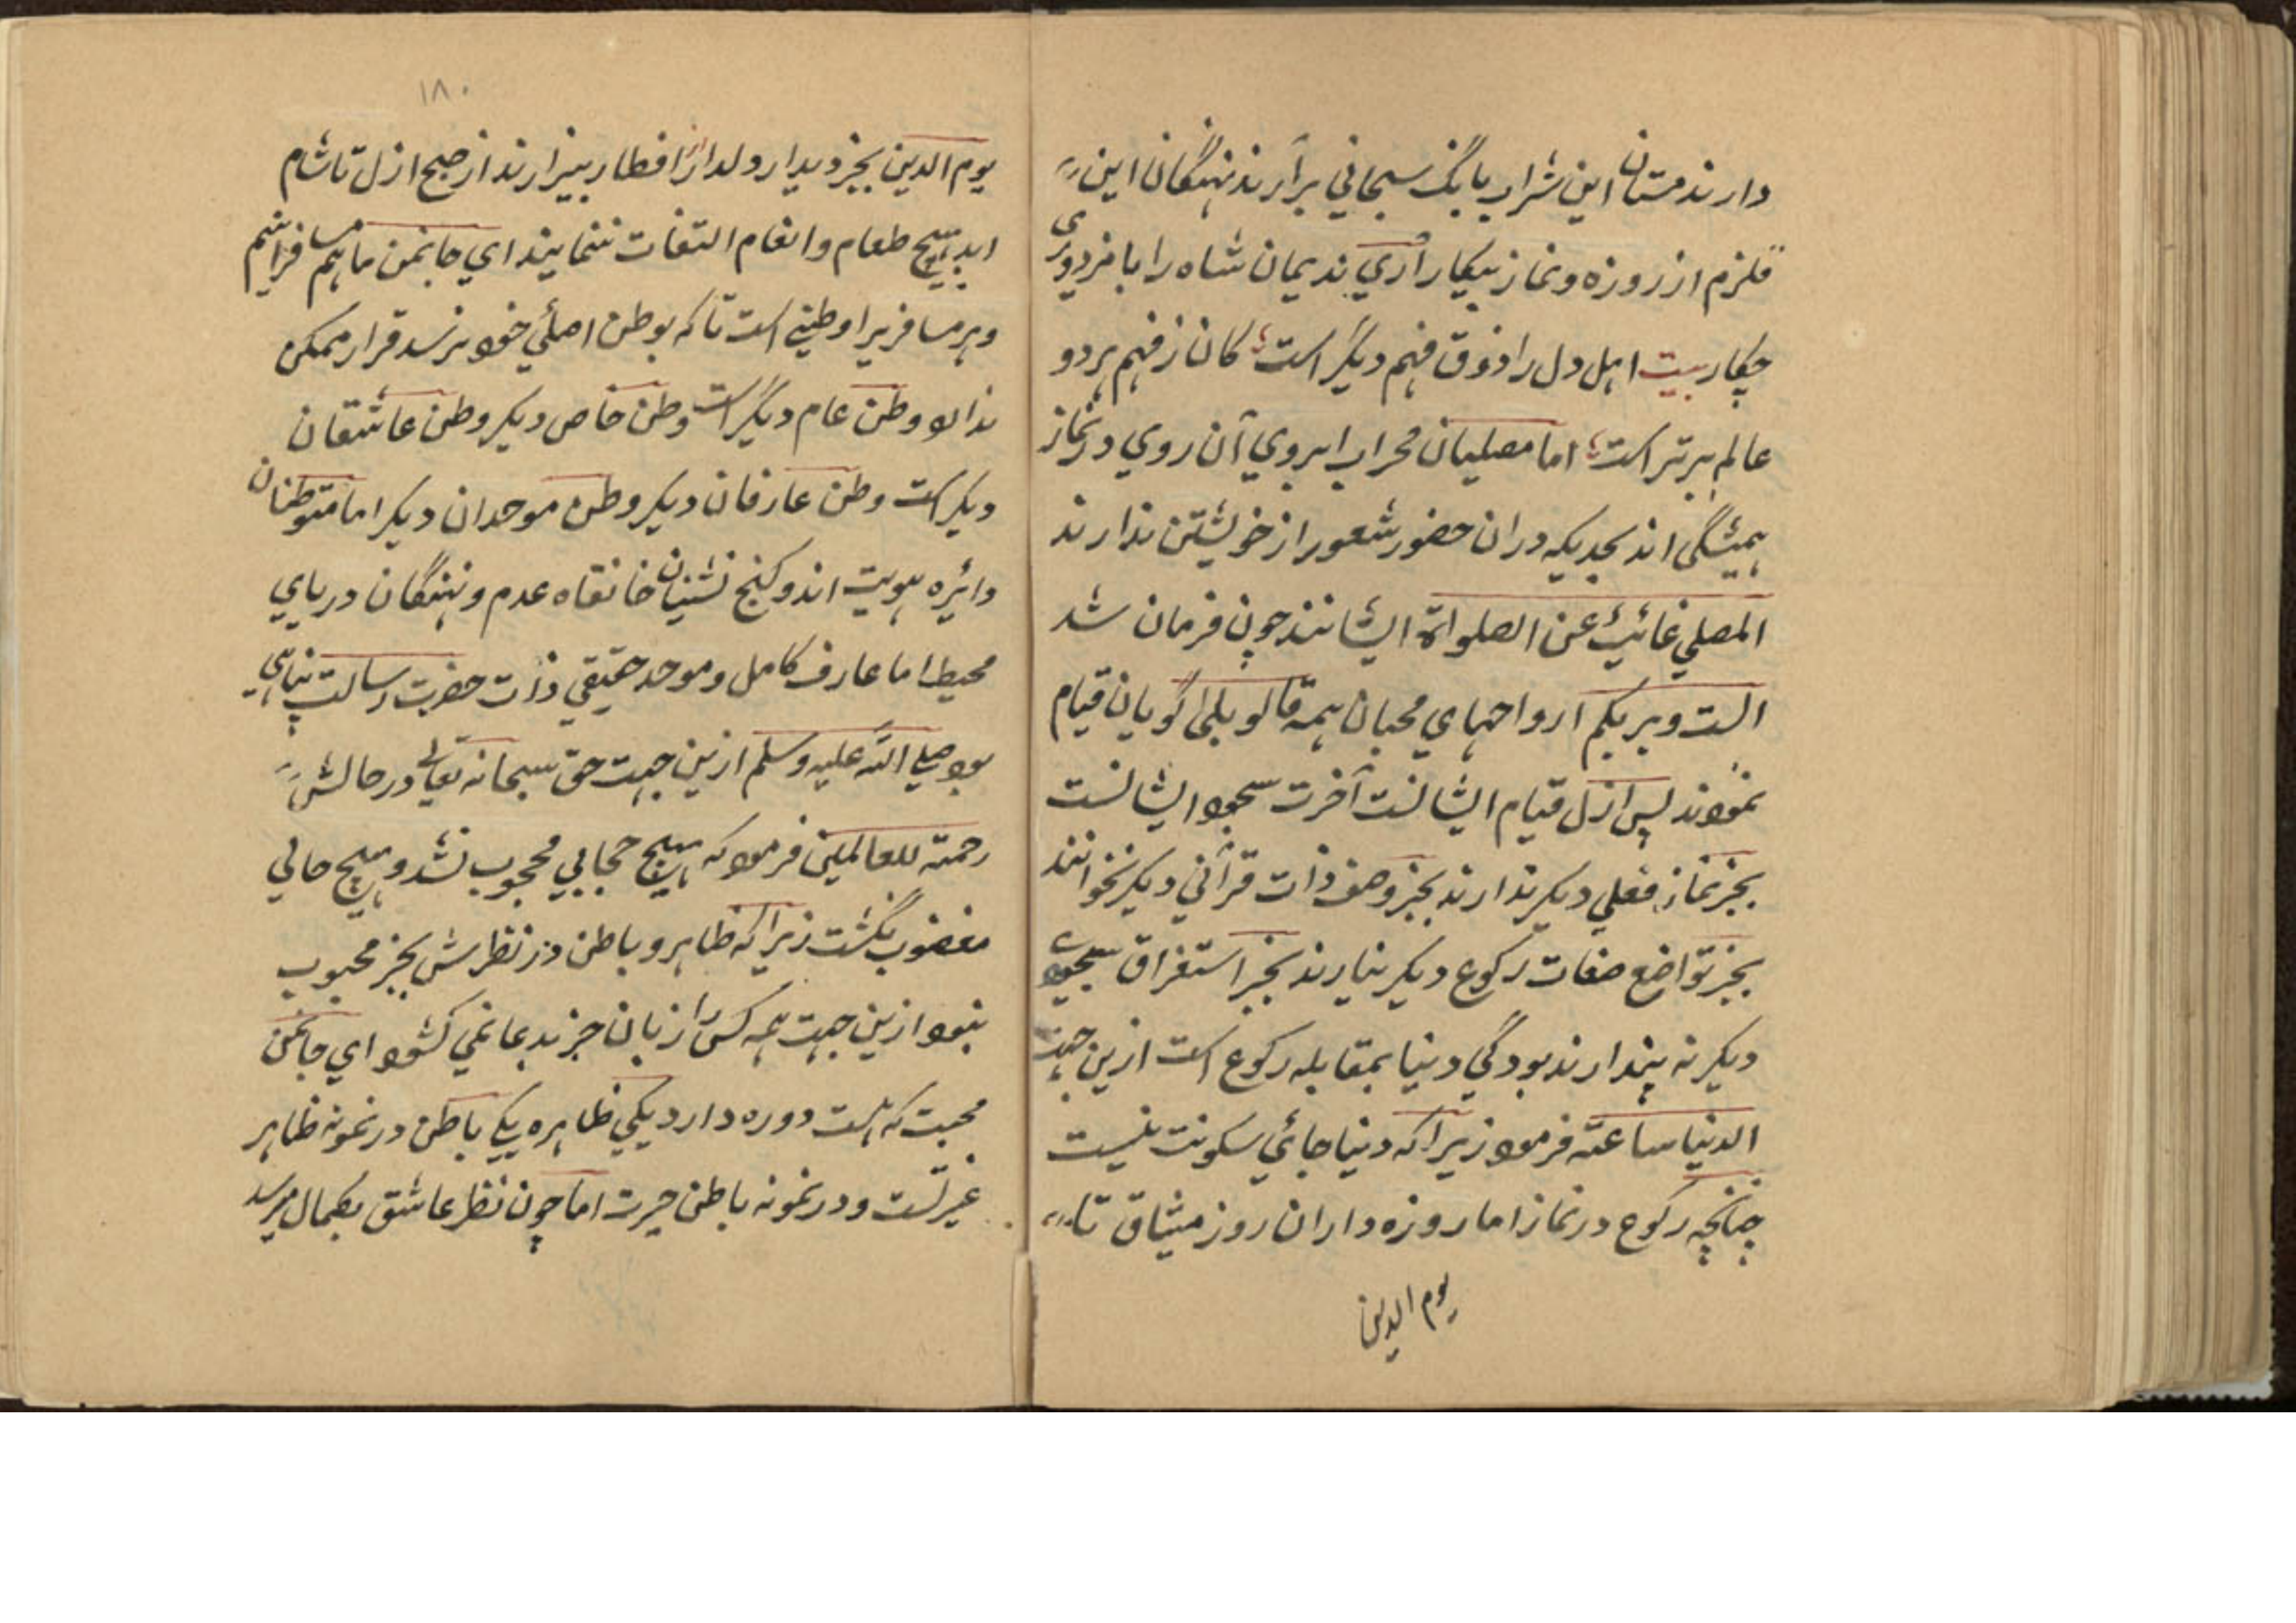 دارند مستان این شراب بانگ سبحاني برآرند نهنگان این
قلزم از روزه و نماز بیکار آري ندیمان شاه را با مزدوري
چکار بیت اهل دل را ذوق فهم دیگر است کان ز فهم هر دو
عالم برتر است اما مصلیان محراب ابروي آن روي در نماز
همیشگی اند بحدیکه دران حضور شعور از خویشتن ندارند
المصلي غائب عن الصلواة ایشانند چون فرمان شد
الست بربکم ارواحهاي محبان همه قالو بلی گویان قیام
نمودند پس ازل قیام ایشانست آخرت سجود ایشانست
بجز نماز فعلي دیکر ندارند بجز وصف ذات قرآني دیکر نخوانند
بجز تواضع صفات رکوع دیکر نیارند بجز استغراق سجودي
دیکر نه پندارند بودگي دنیا بمقابله رکوع است ازین جهت
الدنیا ساعة فرمود زیرا که دنیا جائي سکونت نیست
چنانچه رکوع در نماز اما روزه داران روز میثاق تا
یوم الدین
۱۸۰
یوم الدین بجز دیدار دلدار از افطار بیزارند از صبح ازل تا شام
ابد بهیچ طعام و انعام التفات ننمایند اي جانمن ما هم مسافرانیم
و هر مسافریرا وطنے است تا که بوطن اصلي خود نرسد قرار ممکن
ندارد وطن عام دیگر است وطن خاص دیکر وطن عاشقان
دیکر است وطن عارفان دیکر وطن موحدان دیکر اما متوطنان
دائره هویت اند و کنج نشینان خانقاه عدم و نهنگان دریاي
محیط اما عارف کامل و موحد حقیقي ذات حضرت رسالت پناهي
بود صلے الله علیه وسلم ازین جهت حق سبحانه تعالی در حالش
رحمة للعالمین فرمود که هیچ حجابي محجوب نشد و هیچ حالي
مغضوب نگشت زیرا که ظاهر و باطن در نظرش بجز محبوب
نبود ازین جهت همه کس را زبان جز بدعا نمي کشود اي جانمن
محبت که هست دو ره دارد یکي ظاهره یکے باطن در نمونه ظاهر
غیرتست و در نمونه باطن حیرت اما چون نظر عاشق بکمال میرسد